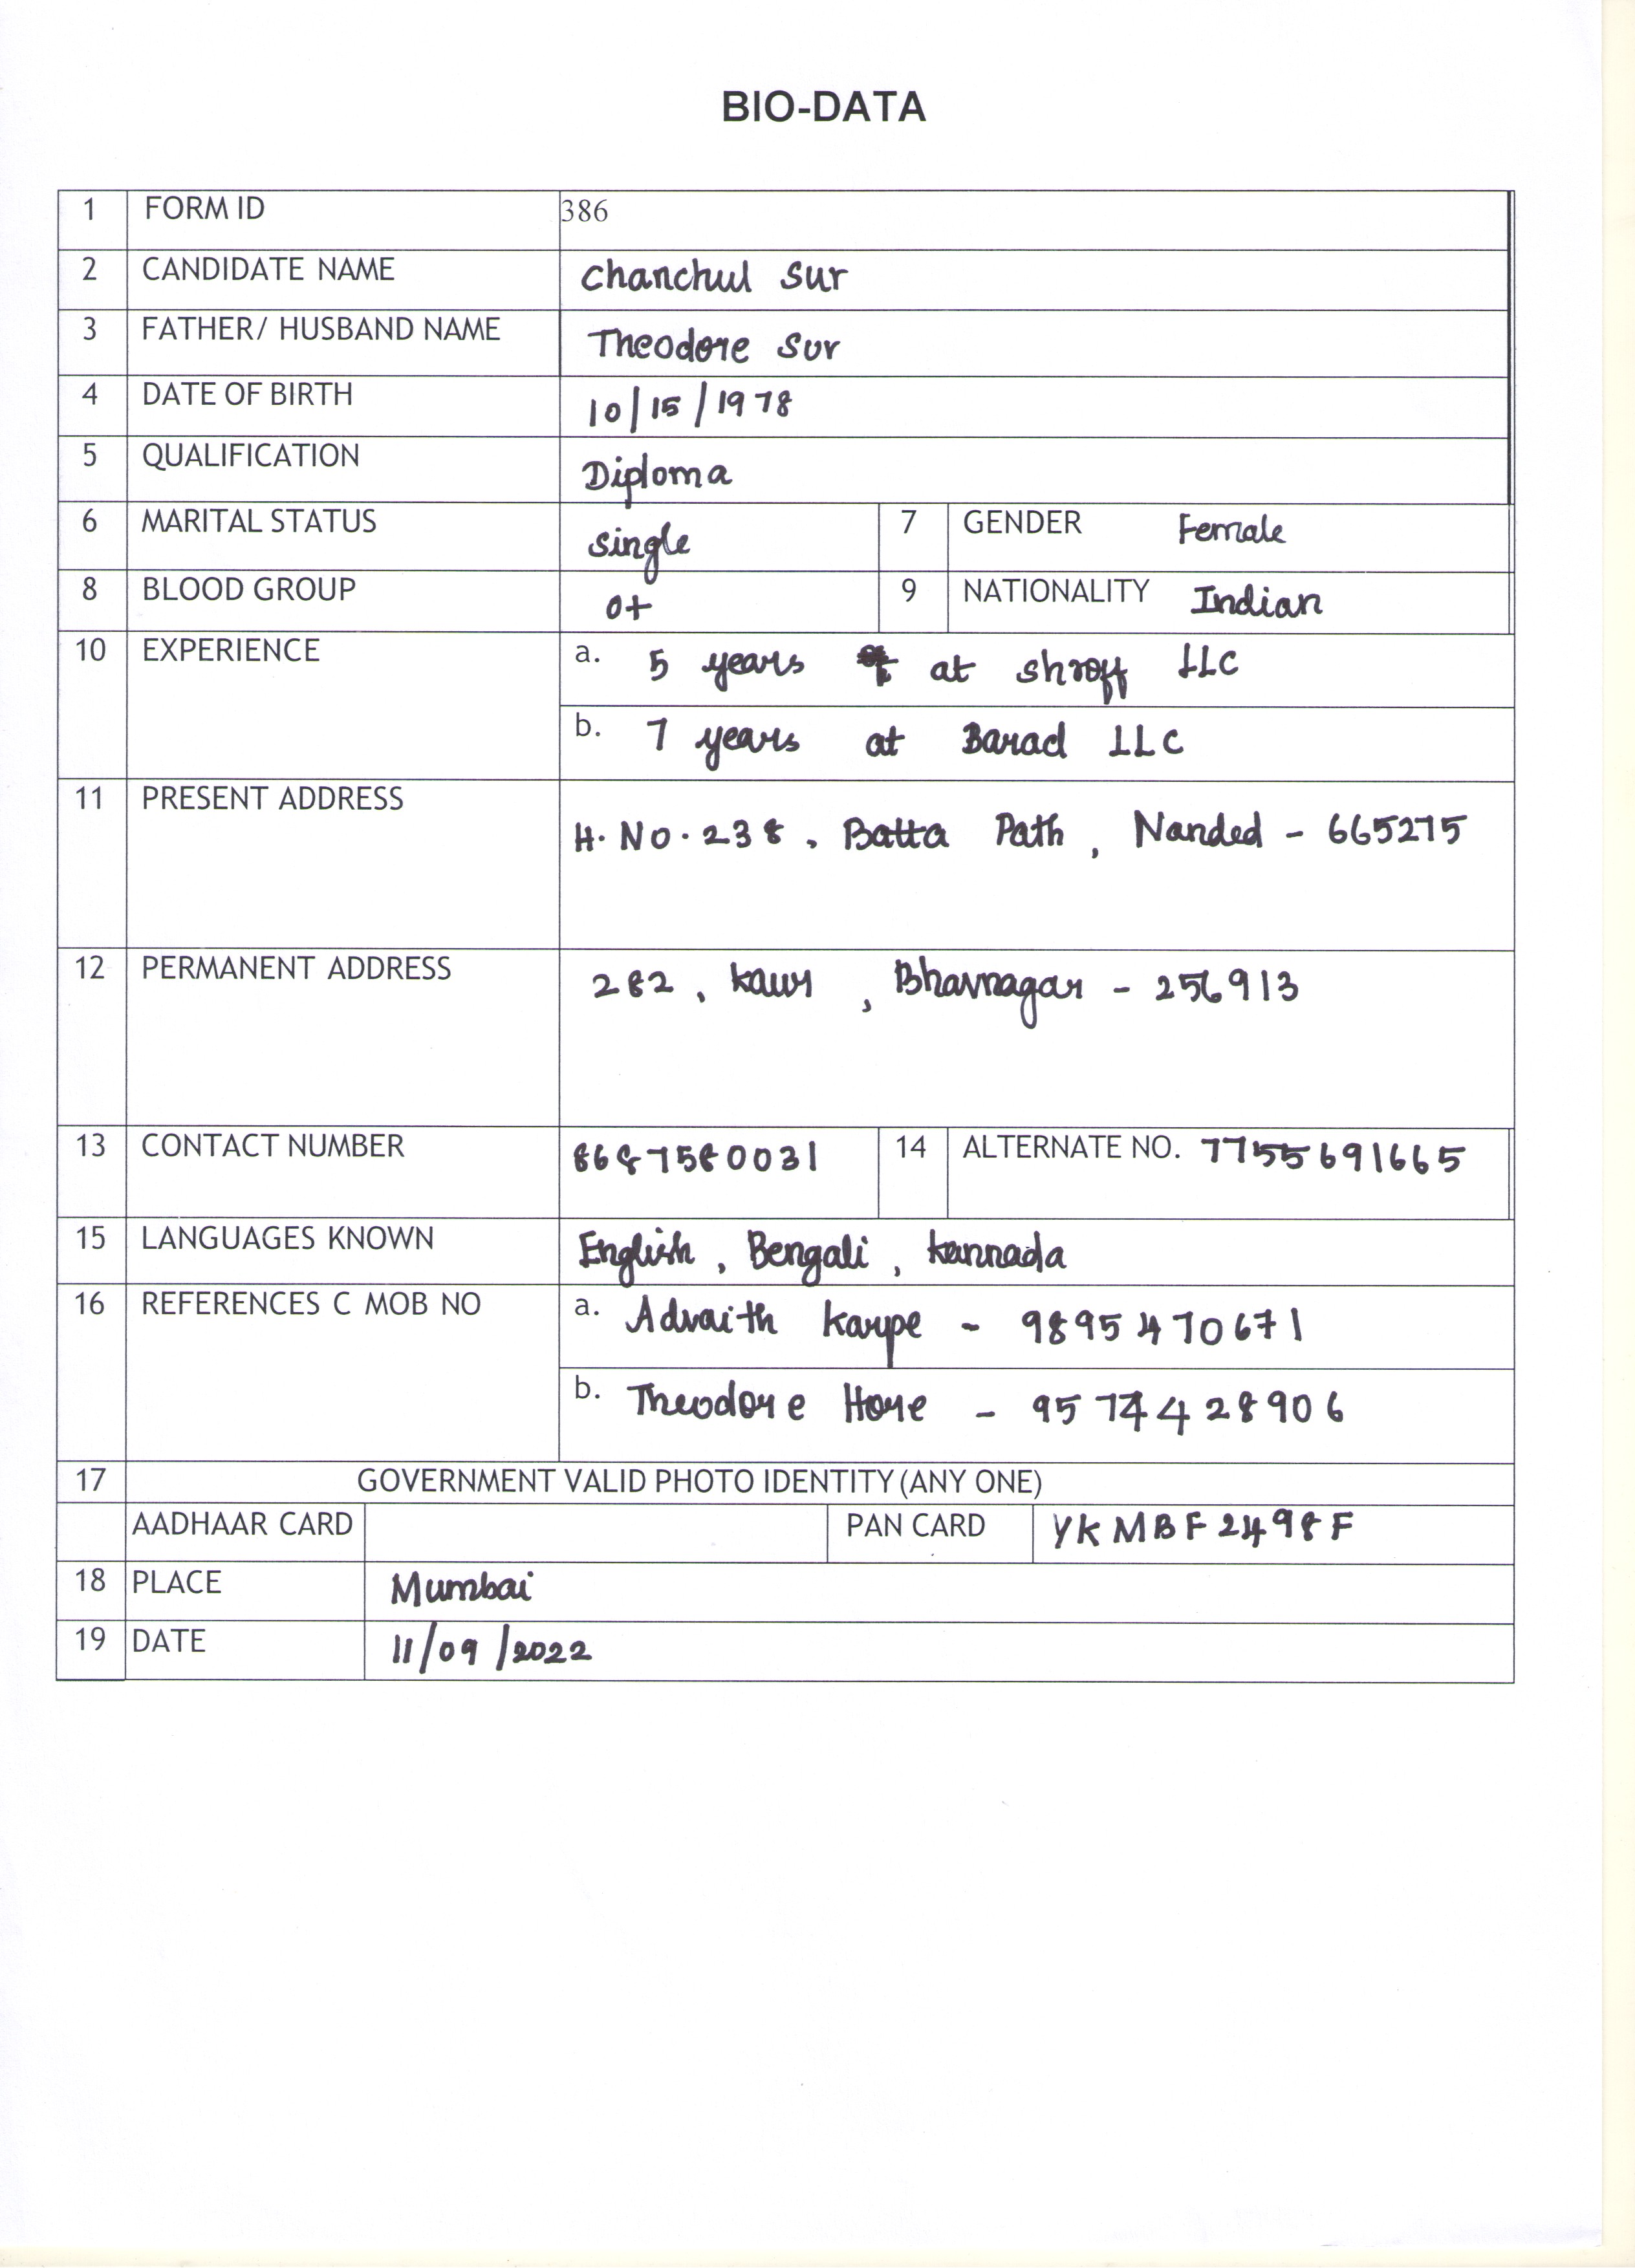 BIO-DATA
1 FORM ID 386
2 CANDIDATE NAME Chanchul Sur
3 FATHER/ HUSBAND NAME Theodore Sur
4 DATE OF BIRTH 10/15/1978
5 QUALIFICATION Diploma
6 MARITAL STATUS single 7 GENDER Female
8 BLOOD GROUP O+ 9 NATIONALITY Indian
10 EXPERIENCE a. 5 years at shroff LLC
b. 7 years at Barad LLC
11 PRESENT ADDRESS H.No.238, Batta Path, Nanded - 665275
12 PERMANENT ADDRESS 282, kaur, Bhavnagar - 256913
13 CONTACT NUMBER 8687580031 14 ALTERNATE NO. 7755691665
15 LANGUAGES KNOWN English, Bengali, kannada
16 REFERENCES C MOB NO a. Advaith karpe - 9895470671
b. Theodore Hore - 9574428906
17 GOVERNMENT VALID PHOTO IDENTITY (ANY ONE)
AADHAAR CARD PAN CARD YKMBF2498F
18 PLACE Mumbai
19 DATE 11/09/2022